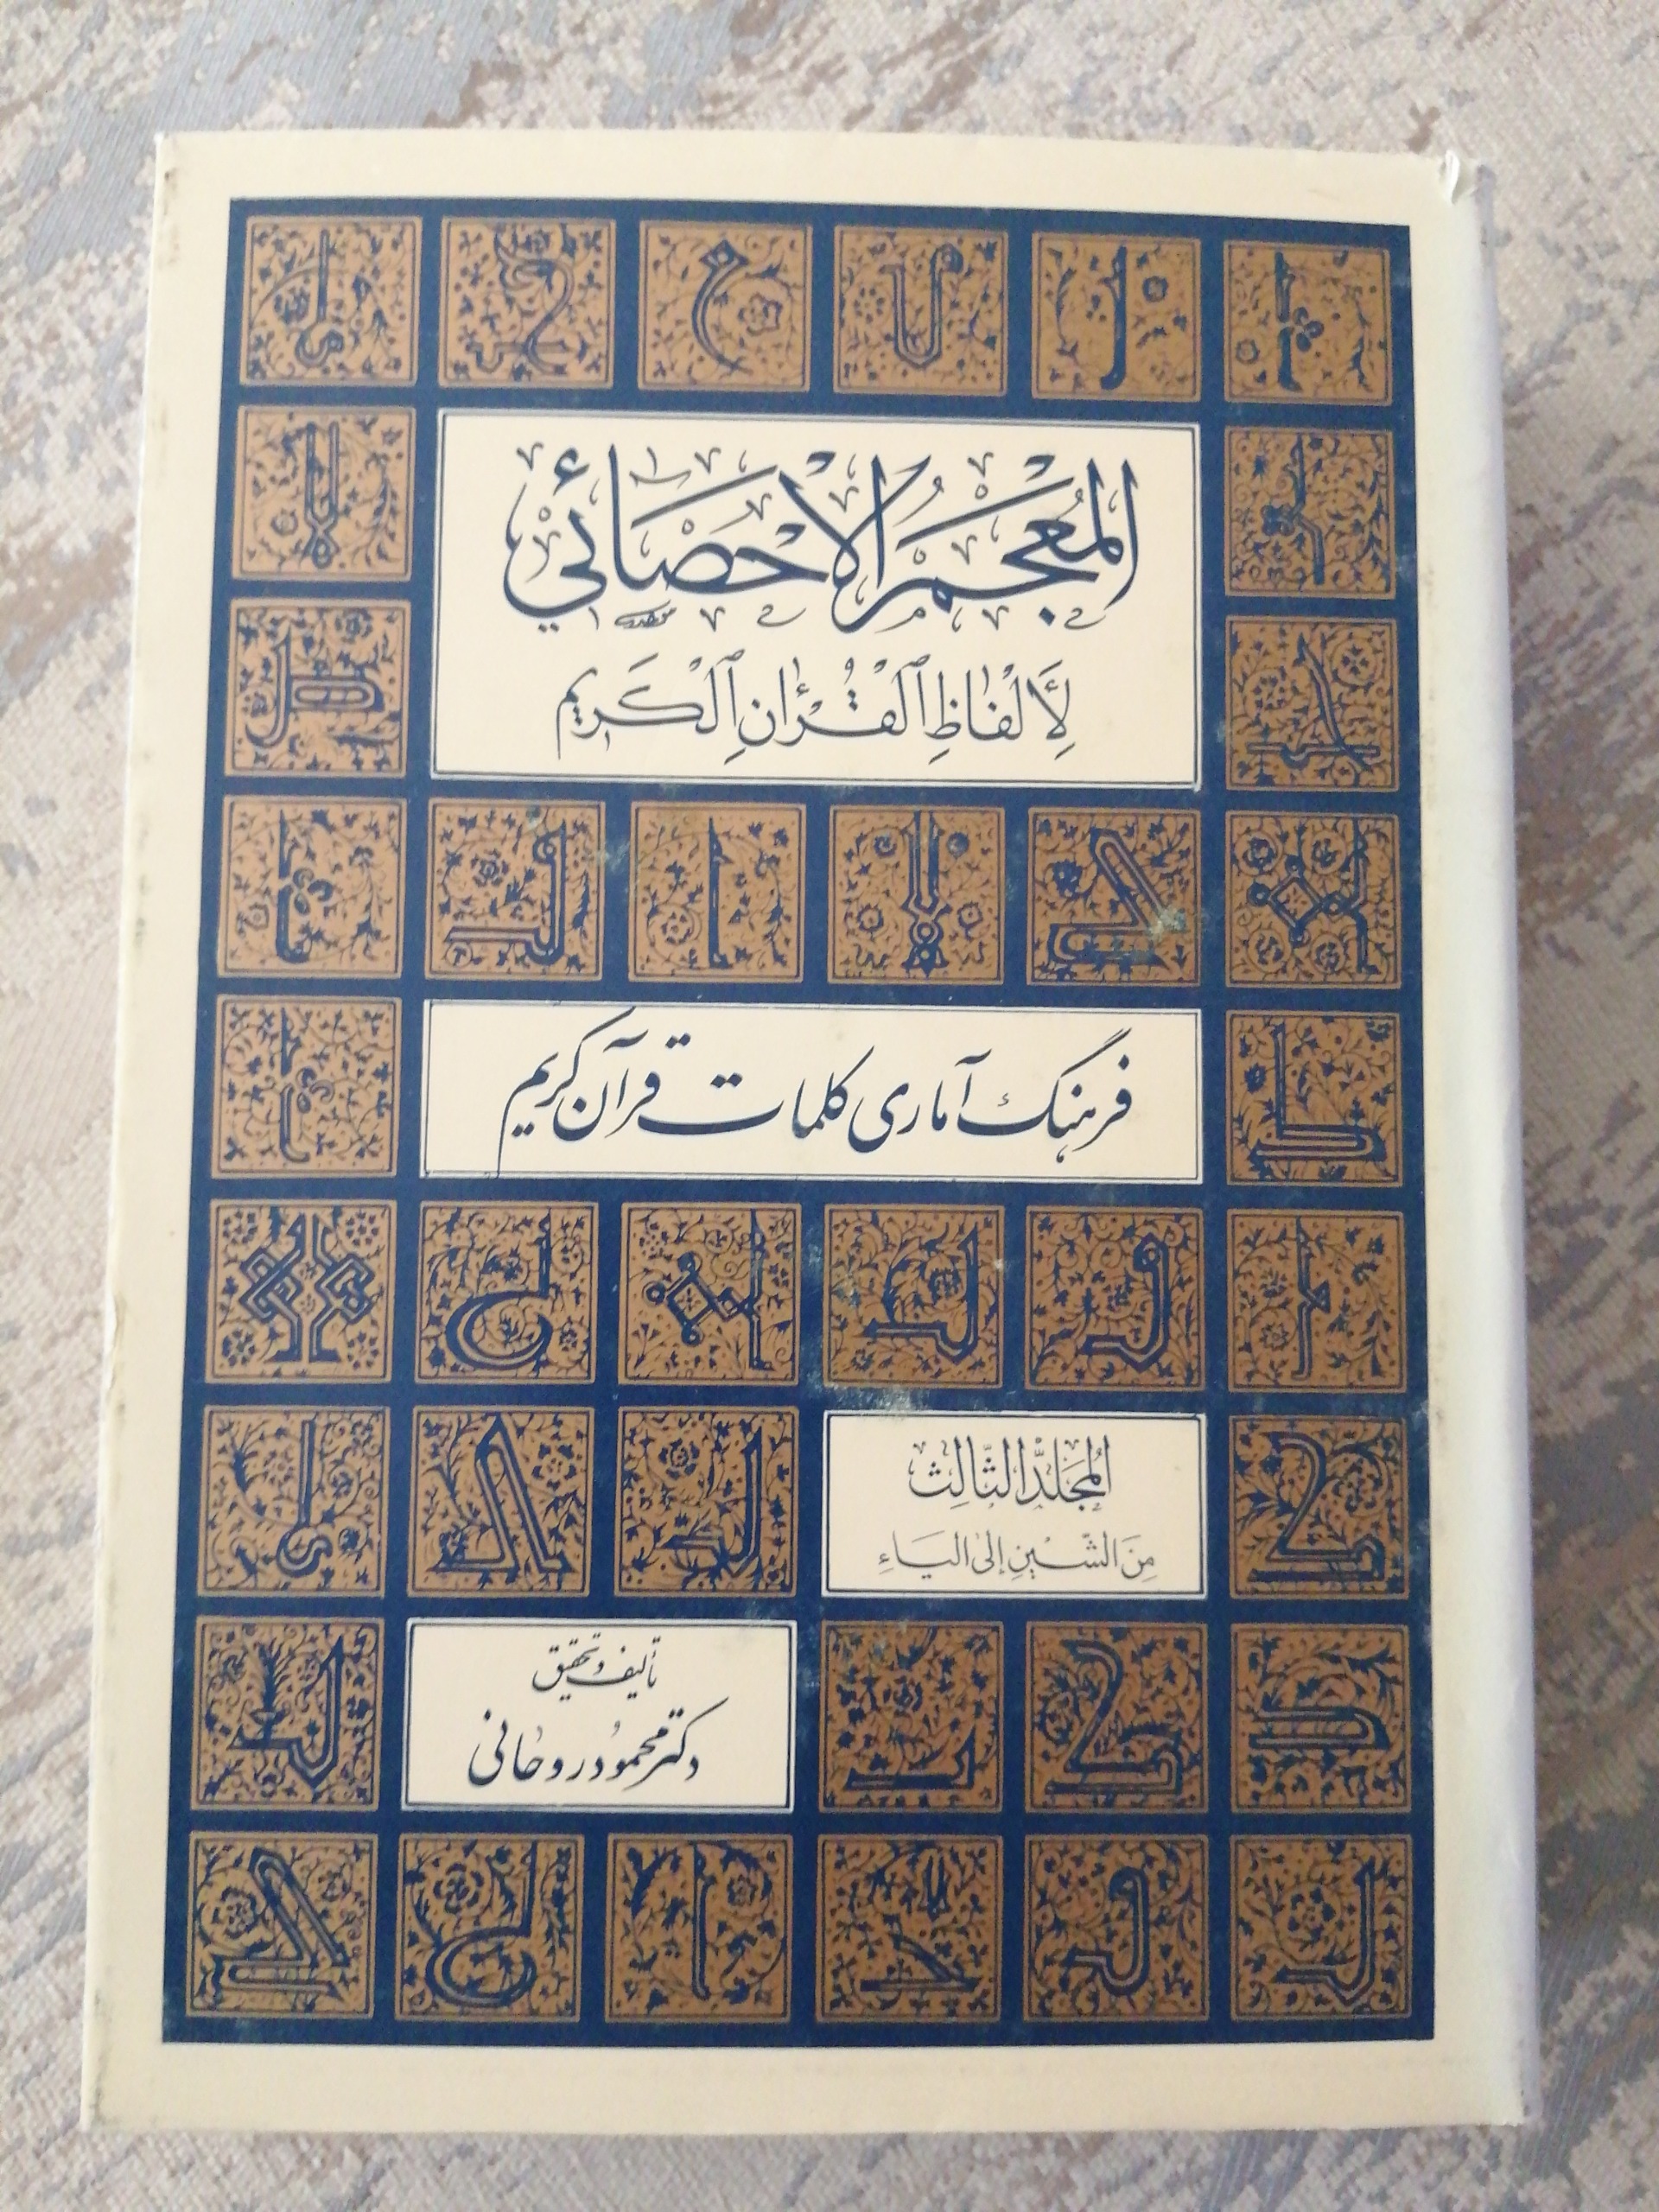 المُعْجَمُ الْإِحْصَائِي
لِأَلْفَاظِ ٱلْقُرْءَانِ ٱلْكَرِيم
فرهنگ آماری کلمات قرآن کریم
المُجَلَّدُ الثَّالِث
مِنَ الشّينِ إلَى اليَاءِ
تأليف و تحقيق
دکتر محمود روحانی